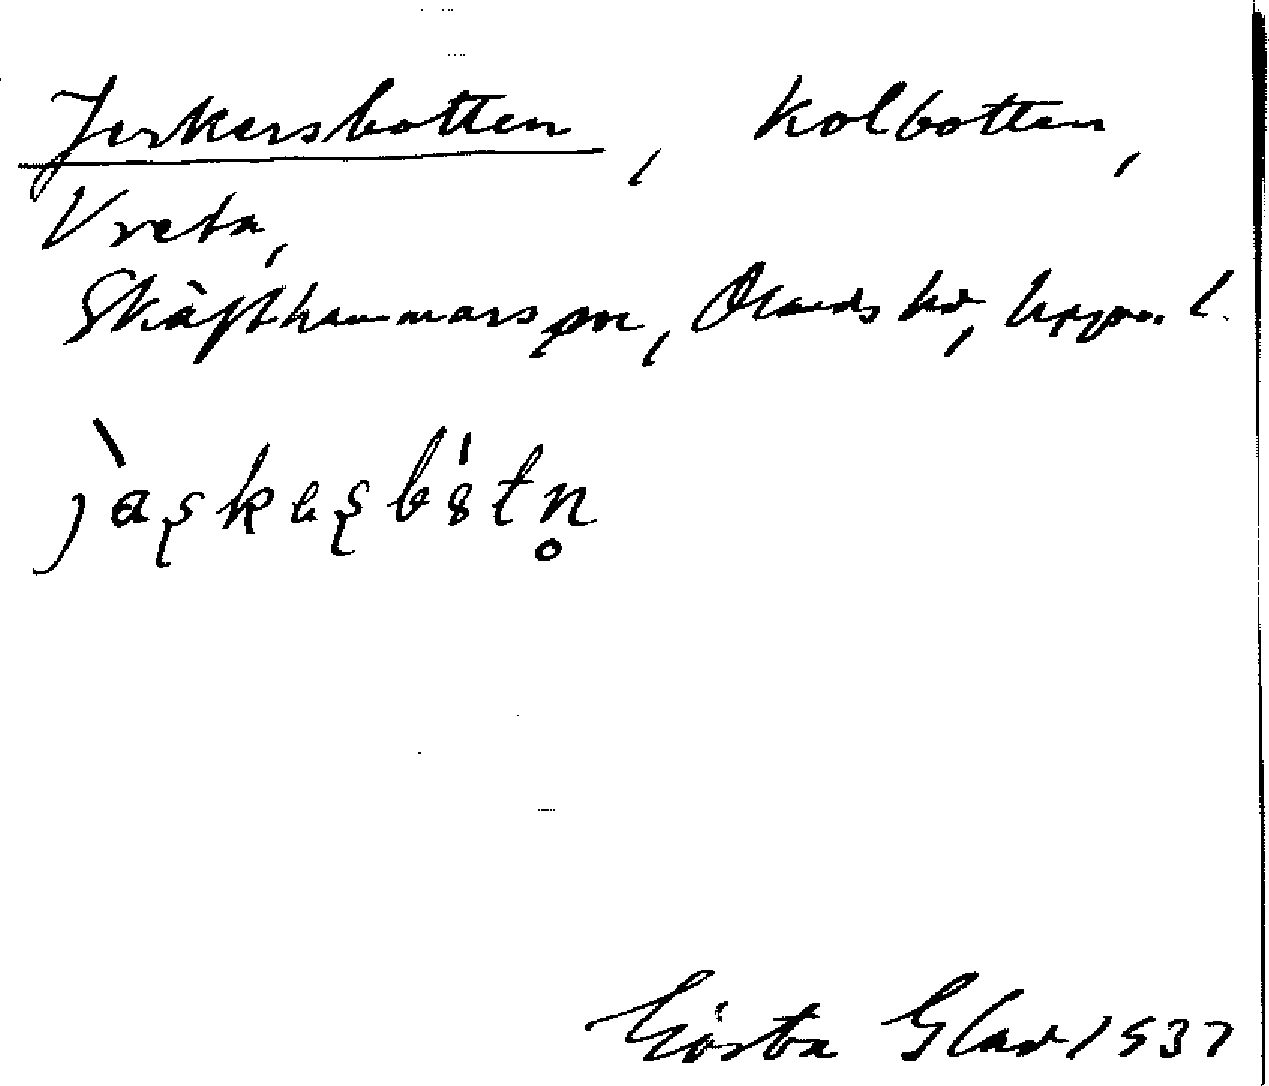 Jerkersbotten, Kolbotten,
Vreta,
Skäfthammars sn, Olands hd, Upps. l.
jàʂkeʂbʹ8tn̥
Gösta Glad 1937